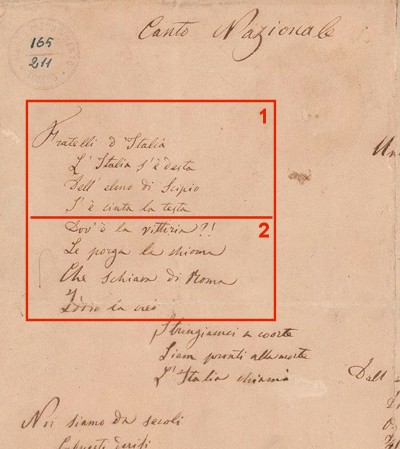 165
211
Canto Nazionale
1
Fratelli d'Italia
L'Italia s'è desta
Dell'elmo di Scipio
S'è cinta la testa
2
Dov'è la vittoria?!
Le porga la chioma
Che schiava di Roma
Iddio la creò
Stringiamci a coorte
Siam pronti alla morte
L'Italia chiamò
Dall'
Noi siamo da secoli
Calpesti derisi